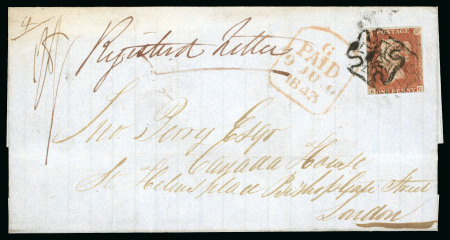 Registered Letter
G
PAID
9 JU 9
1843
POSTAGE
ONE PENNY
Jno Perry Esqr
Canada House
St Helens place Bishopsgate Street
London